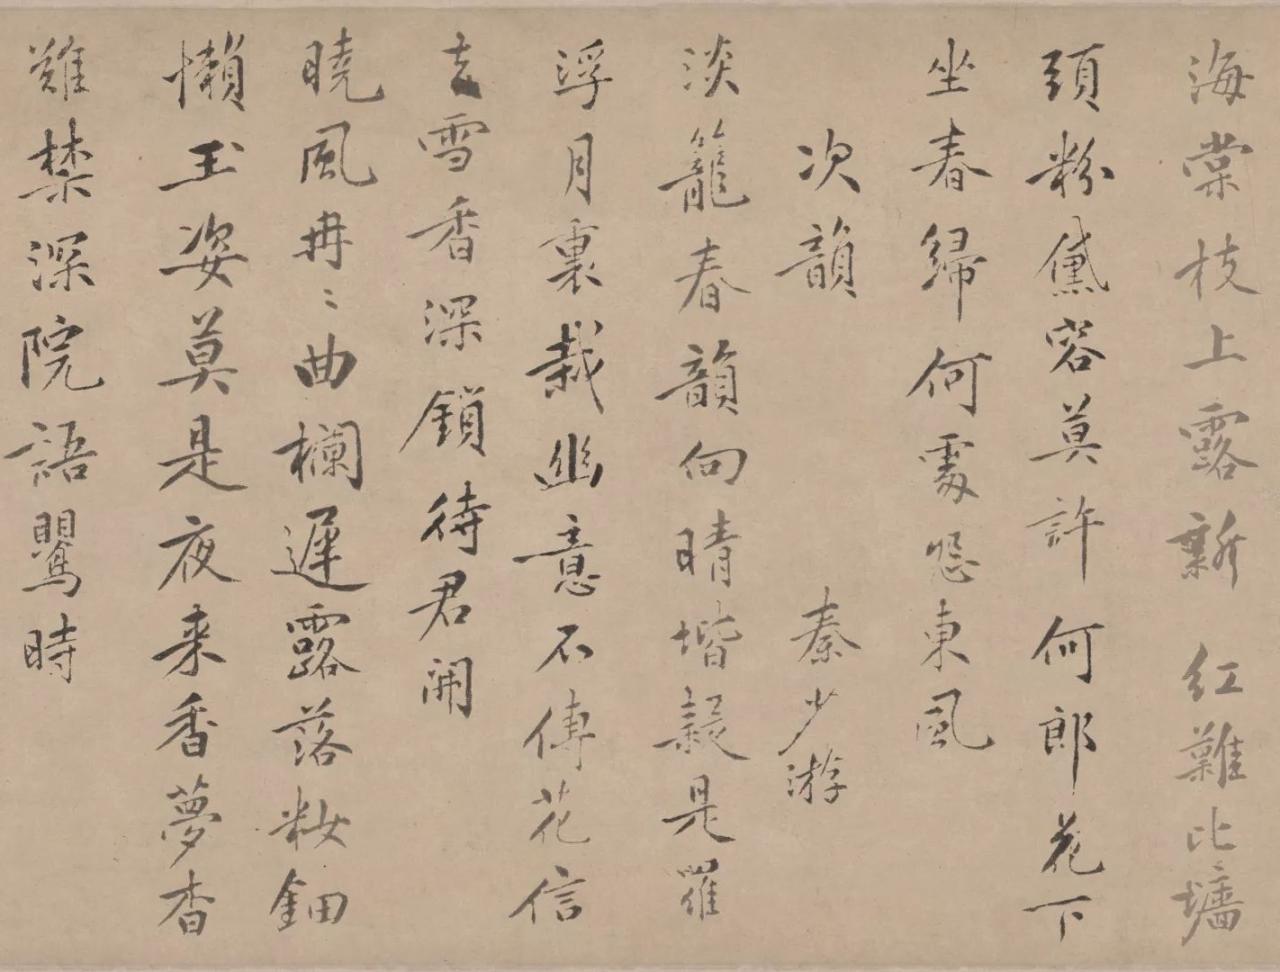 海棠枝上露新紅難比墻
頭粉黛容莫許何郎花下
坐春歸何處怨東風
次韻 秦少游
淡籠春韻向晴堦疑是羅
浮月裏栽幽意不傳花信
去雪香深鎖待君開
曉風冉〻曲欄遲露落妝鈿
懶玉姿莫是夜来香夢杳
難禁深院語鸎時